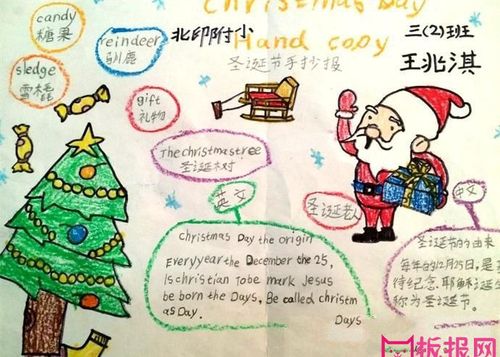 Christmas Day
Hand copy
圣诞节手抄报
北印附小
三(2)班
王兆淇
candy
糖果
reindeer
驯鹿
sledge
雪橇
gift
礼物
The christmastree
圣诞树
圣诞老人
英文
Christmas Day the origin
Everyyear the December the 25,
Is christian Tobe mark Jesus
be born the Days, Be called christm
as Day.
Days
中文
圣诞节的由来
每年的12月25日,是
待纪念,耶稣诞生
称为圣诞节。
板报网